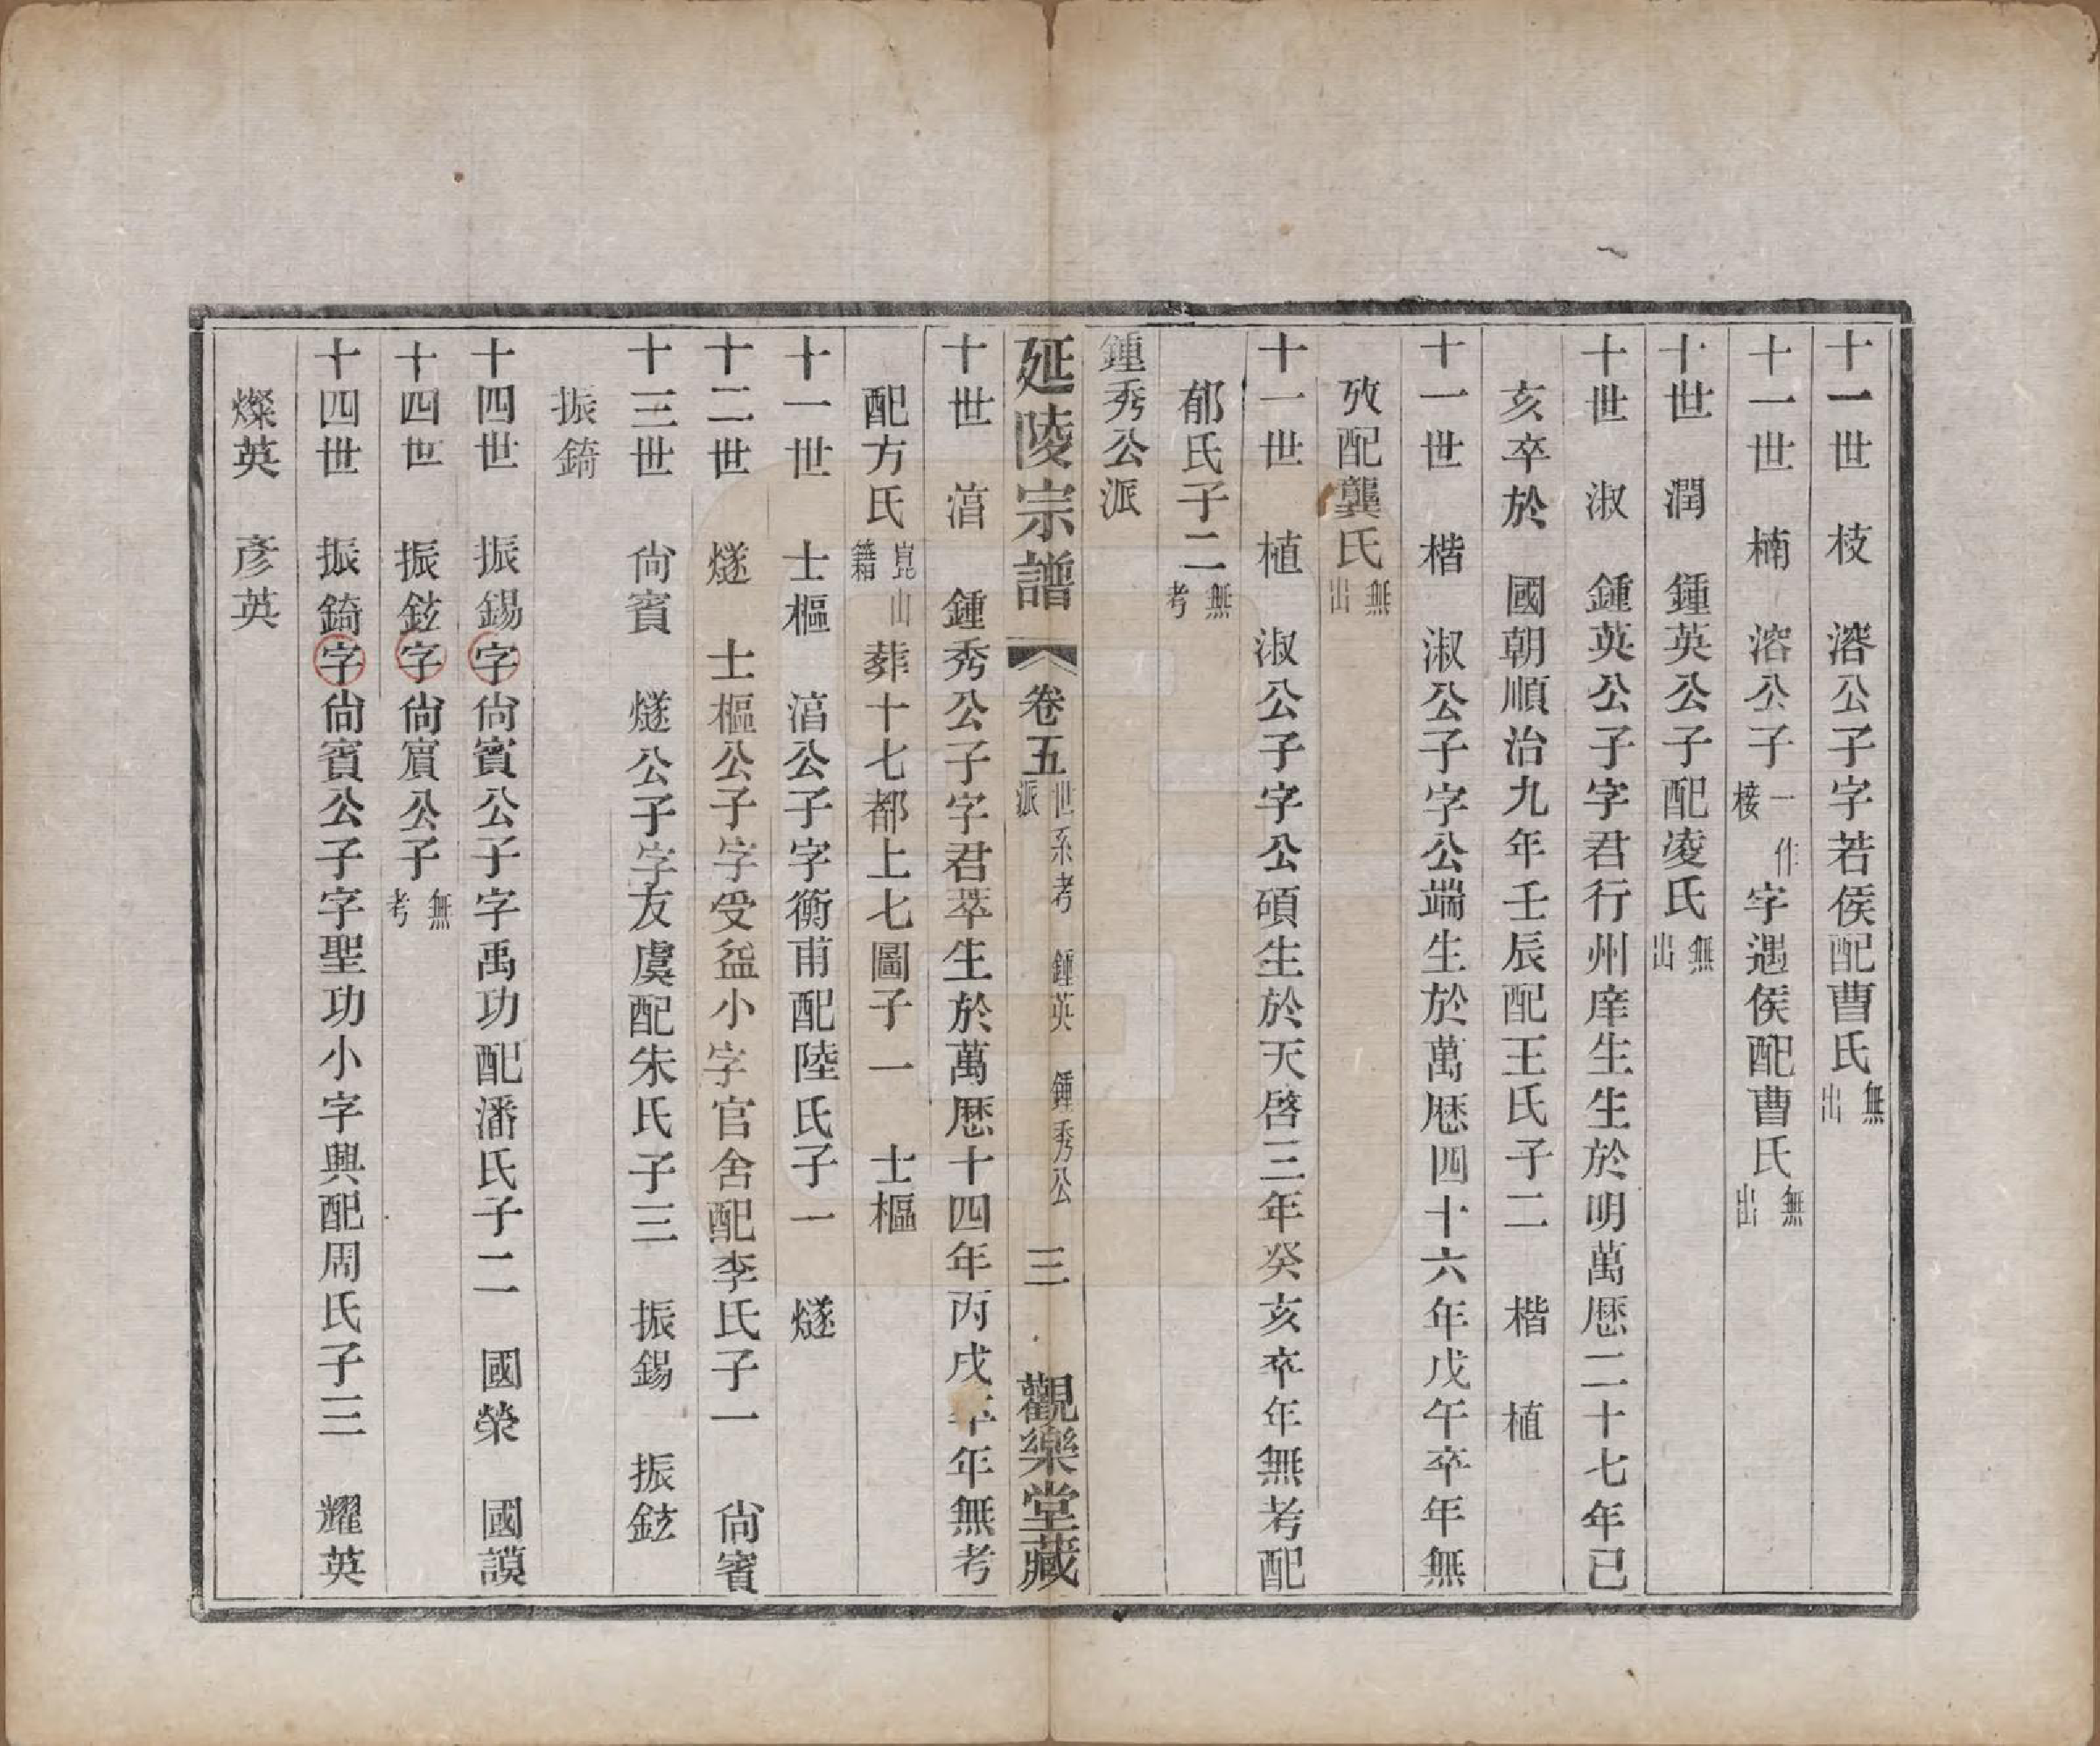 十一世　枝　溶公子字若侯配曹氏無出
十一世　楠　溶公子一作椄字遇侯配曹氏無出
十世　潤　鍾英公子配凌氏無出
十世　淑　鍾英公子字君行州庠生生於明萬厯二十七年已
亥卒於　國朝順治九年壬辰配王氏子二　楷　植
十一世　楷　淑公子字公端生於萬厯四十六年戊午卒年無
攷配龔氏無出
十一世　植　淑公子字公碩生於天啓三年癸亥卒年無考配
郁氏子二無考
鍾秀公派
延陵宗譜　卷五世系考　鍾英　鍾秀公派　三　觀樂堂藏
十世　鍾秀公子字君萃生於萬厯十四年丙戌卒年無考
配方氏崑山籍葬十七都上七圖子一　士樞
十一世　士樞　公子字衡甫配陸氏子一　燧
十二世　燧　士樞公子字受益小字官舍配李氏子一　尙賓
十三世　尙賓　燧公子字友虞配朱氏子三　振錫　振鉉
振錡
十四世　振錫字尙賓公子字禹功配潘氏子二　國榮　國謨
十四世　振鉉字尙賓公子無考
十四世　振錡字尙賓公子字聖功小字興配周氏子三　耀英
燦英　彥英